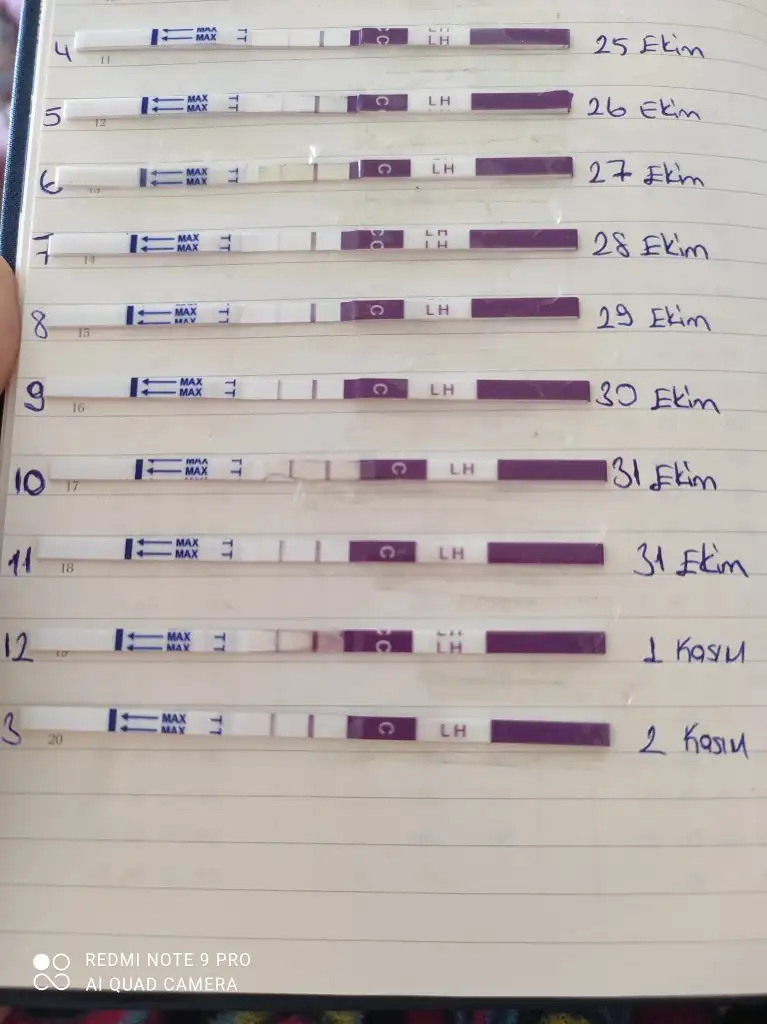 4 MAX MAX C LH 25 Ekim
11
5 MAX MAX C LH 26 Ekim
12
6 MAX MAX C LH 27 Ekim
13
7 MAX MAX C LH 28 Ekim
14
8 MAX MAX C LH 29 Ekim
15
9 MAX MAX C LH 30 Ekim
16
10 MAX MAX C LH 31 Ekim
17
11 MAX MAX C LH 31 Ekim
18
12 MAX MAX C LH 1 Kasım
19
3 MAX MAX C LH 2 Kasım
20
REDMI NOTE 9 PRO
AI QUAD CAMERA